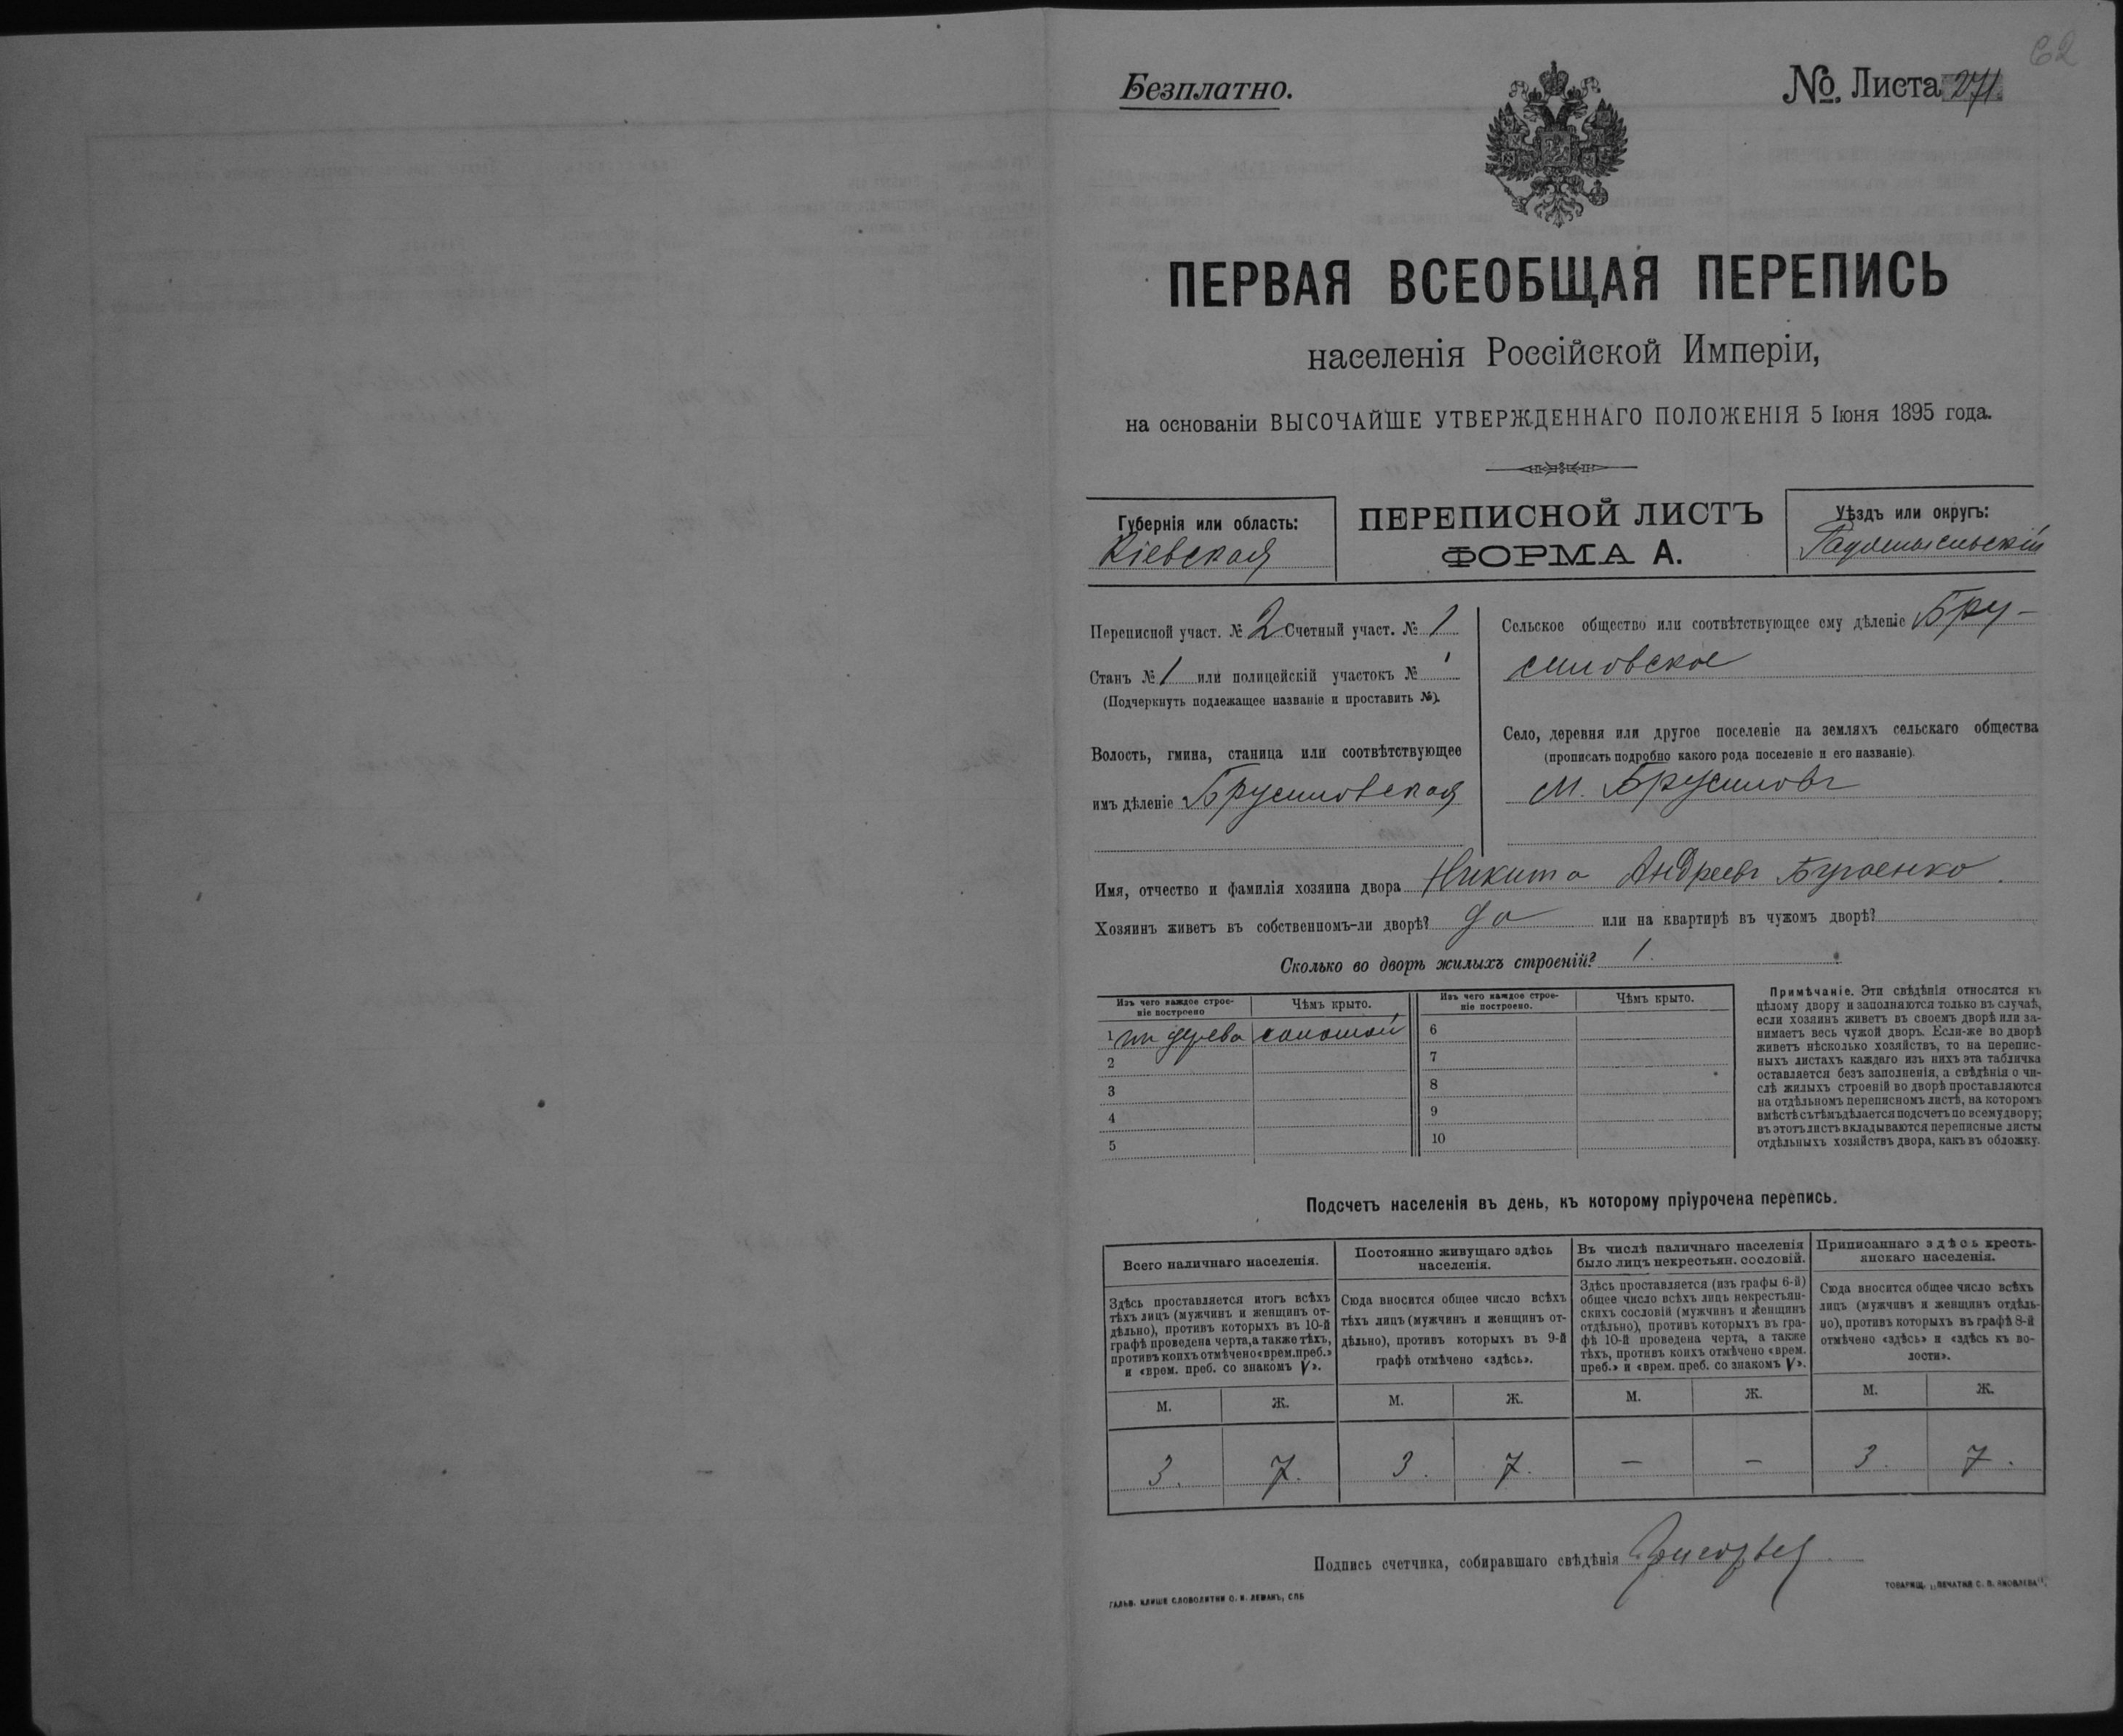 62
Безплатно.
№ Листа 271
ПЕРВАЯ ВСЕОБЩАЯ ПЕРЕПИСЬ
населенія Россійской Имперіи,
на основаніи ВЫСОЧАЙШЕ УТВЕРЖДЕННАГО ПОЛОЖЕНІЯ 5 Іюня 1895 года.
Губернія или область:
Кіевская
ПЕРЕПИСНОЙ ЛИСТЪ
ФОРМА А.
Уѣздъ или округъ:
Радомысльскій
Переписной участ. № 2 Счетный участ. № 1
Станъ № 1 или полицейскій участокъ № 1
(Подчеркнуть подлежащее названіе и проставить №).
Волость, гмина, станица или соотвѣтствующее
имъ дѣленіе Брусиловская
Сельское общество или соотвѣтствующее ему дѣленіе Бру-
силовское
Село, деревня или другое поселеніе на земляхъ сельскаго общества
(прописать подробно какого рода поселеніе и его названіе).
М. Брусиловъ
Имя, отчество и фамилія хозяина двора Никита Андреевъ Бугаенко.
Хозяинъ живетъ въ собственномъ-ли дворѣ? да или на квартирѣ въ чужомъ дворѣ?
Сколько во дворѣ жилыхъ строеній? 1.
Изъ чего каждое строе-
ніе построено
Чѣмъ крыто.
Изъ чего каждое строе-
ніе построено.
Чѣмъ крыто.
1 изъ дерева соломой
2
3
4
5
6
7
8
9
10
Примѣчаніе. Эти свѣдѣнія относятся къ
цѣлому двору и заполняются только въ случаѣ,
если хозяинъ живетъ въ своемъ дворѣ или за-
нимаетъ весь чужой дворъ. Если-же во дворѣ
живетъ нѣсколько хозяйствъ, то на перепис-
ныхъ листахъ каждаго изъ нихъ эта табличка
оставляется безъ заполненія, а свѣдѣнія о чи-
слѣ жилыхъ строеній во дворѣ проставляются
на отдѣльномъ переписномъ листѣ, на которомъ
вмѣстѣ съ тѣмъ дѣлается подсчетъ по всему двору;
въ этотъ листъ вкладываются переписные листы
отдѣльныхъ хозяйствъ двора, какъ въ обложку.
Подсчетъ населенія въ день, къ которому пріурочена перепись.
Всего наличнаго населенія.
Здѣсь проставляется итогъ всѣхъ
тѣхъ лицъ (мужчинъ и женщинъ от-
дѣльно), противъ которыхъ въ 10-й
графѣ проведена черта, а также тѣхъ,
противъ коихъ отмѣчено «врем. преб.»
и «врем. преб. со знакомъ V».
М. Ж.
3. 7.
Постоянно живущаго здѣсь
населенія.
Сюда вносится общее число всѣхъ
тѣхъ лицъ (мужчинъ и женщинъ от-
дѣльно), противъ которыхъ въ 9-й
графѣ отмѣчено «здѣсь».
М. Ж.
3. 7.
Въ числѣ наличнаго населенія
было лицъ некрестьян. сословій.
Здѣсь проставляется (изъ графы 6-й)
общее число всѣхъ лицъ некрестьян-
скихъ сословій (мужчинъ и женщинъ
отдѣльно), противъ которыхъ въ гра-
фѣ 10-й проведена черта, а также
тѣхъ, противъ коихъ отмѣчено «врем.
преб.» и «врем. преб. со знакомъ V».
М. Ж.
— —
Приписаннаго здѣсь кресть-
янскаго населенія.
Сюда вносится общее число всѣхъ
лицъ (мужчинъ и женщинъ отдѣль-
но), противъ которыхъ въ графѣ 8-й
отмѣчено «здѣсь» и «здѣсь къ во-
лости».
М. Ж.
3. 7.
Подпись счетчика, собиравшаго свѣдѣнія
ГАЛЬВ. КЛИШЕ СЛОВОЛИТНИ О. И. ЛЕМАНЪ, СПБ
ТОВАРИЩ. „ПЕЧАТНЯ С. П. ЯКОВЛЕВА“.